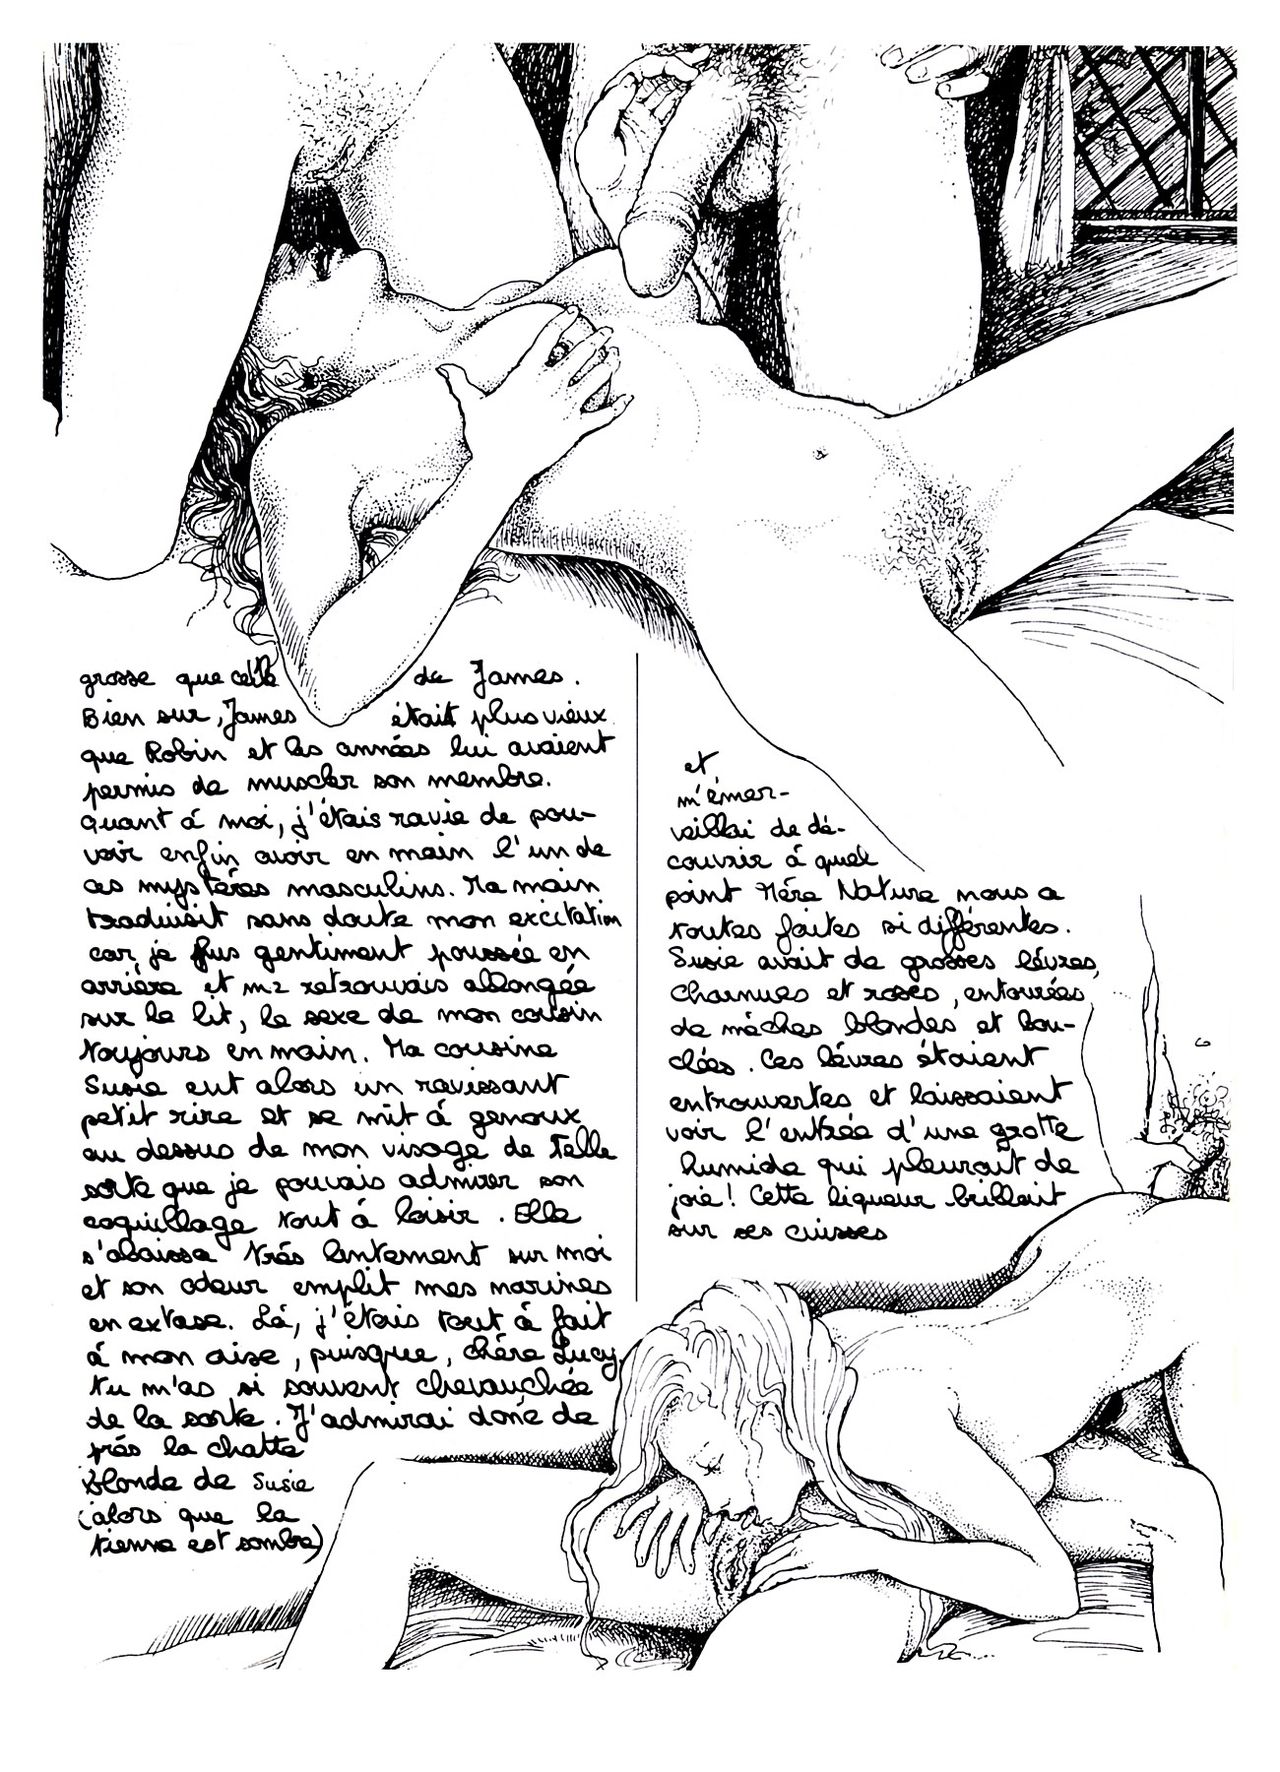 grosse que celle de James.
Bien sur, James était plus vieux
que Robin et les années lui avaient
permis de muscler son membre.
Quant á moi, j'étais ravie de pou-
voir enfin avoir en main l'un de
ces mystéres masculins. Ma main
traduisit sans doute mon excitation
car je fus gentiment poussée en
arriére et me retrouvais allongée
sur le lit, le sexe de mon cousin
toujours en main. Ma cousine
Susie eut alors un ravissant
petit rire et se mit á genoux
au dessus de mon visage de telle
sorte que je pouvais admirer son
coquillage tout á loisir. Elle
s'abaissa trés lentement sur moi
et son odeur emplit mes narines
en extase. Lá, j'étais tout á fait
á mon aise, puisque, chére Lucy,
tu m'as si souvent chevauchée
de la sorte. J'admirai donc de
prés la chatte
blonde de Susie
(alors que la
tienne est sombre)
et
m'émer-
veillai de dé-
couvrir á quel
point Mére Nature nous a
toutes faites si différentes.
Susie avait de grosses lévres,
charnues et roses, entourées
de méches blondes et bou-
clées. Ces lévres étaient
entrouvertes et laissaient
voir l'entrée d'une grotte
humide qui pleurait de
joie! Cette liqueur brillait
sur ses cuisses